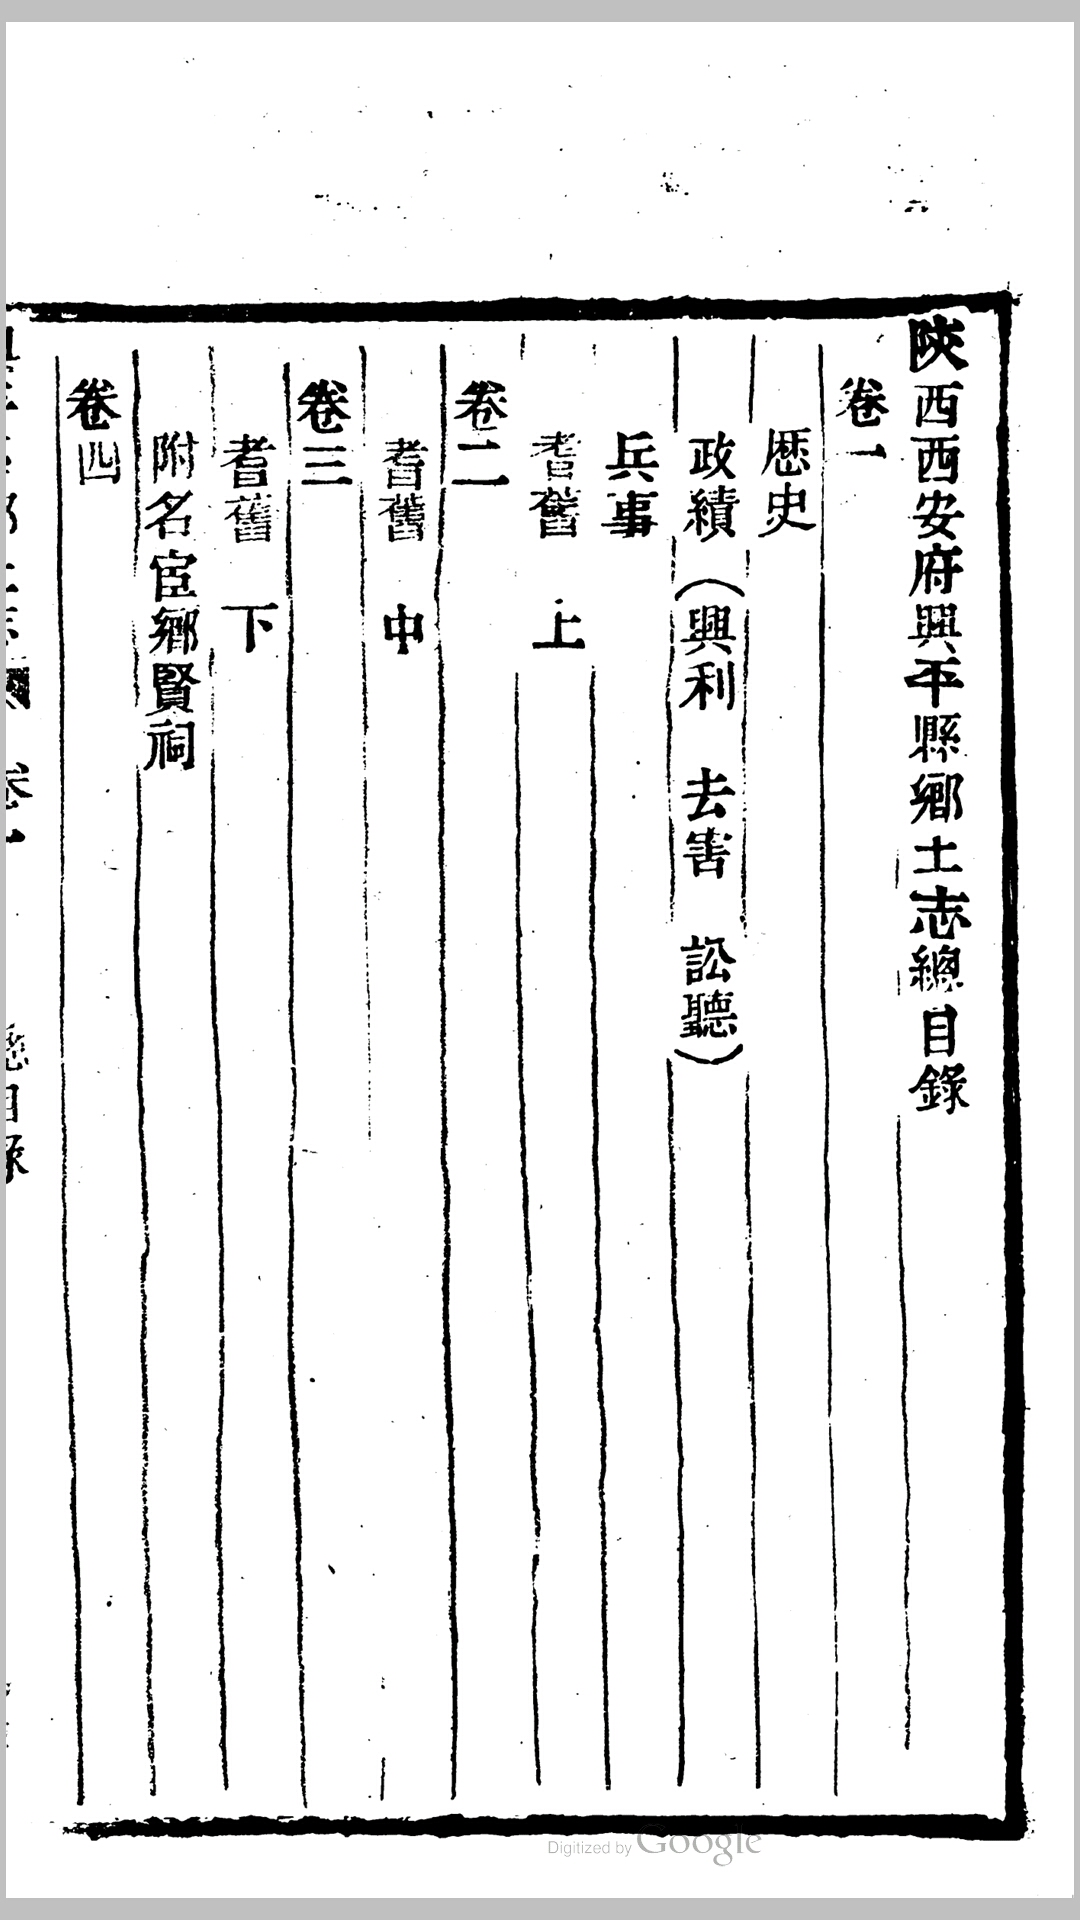 陝西西安府興平縣鄉土志總目錄
卷一
歷史
政績（興利 去害 訟聽）
兵事
耆舊 上
卷二
耆舊 中
卷三
耆舊 下
附名宦鄉賢祠
卷四
Digitized by Google